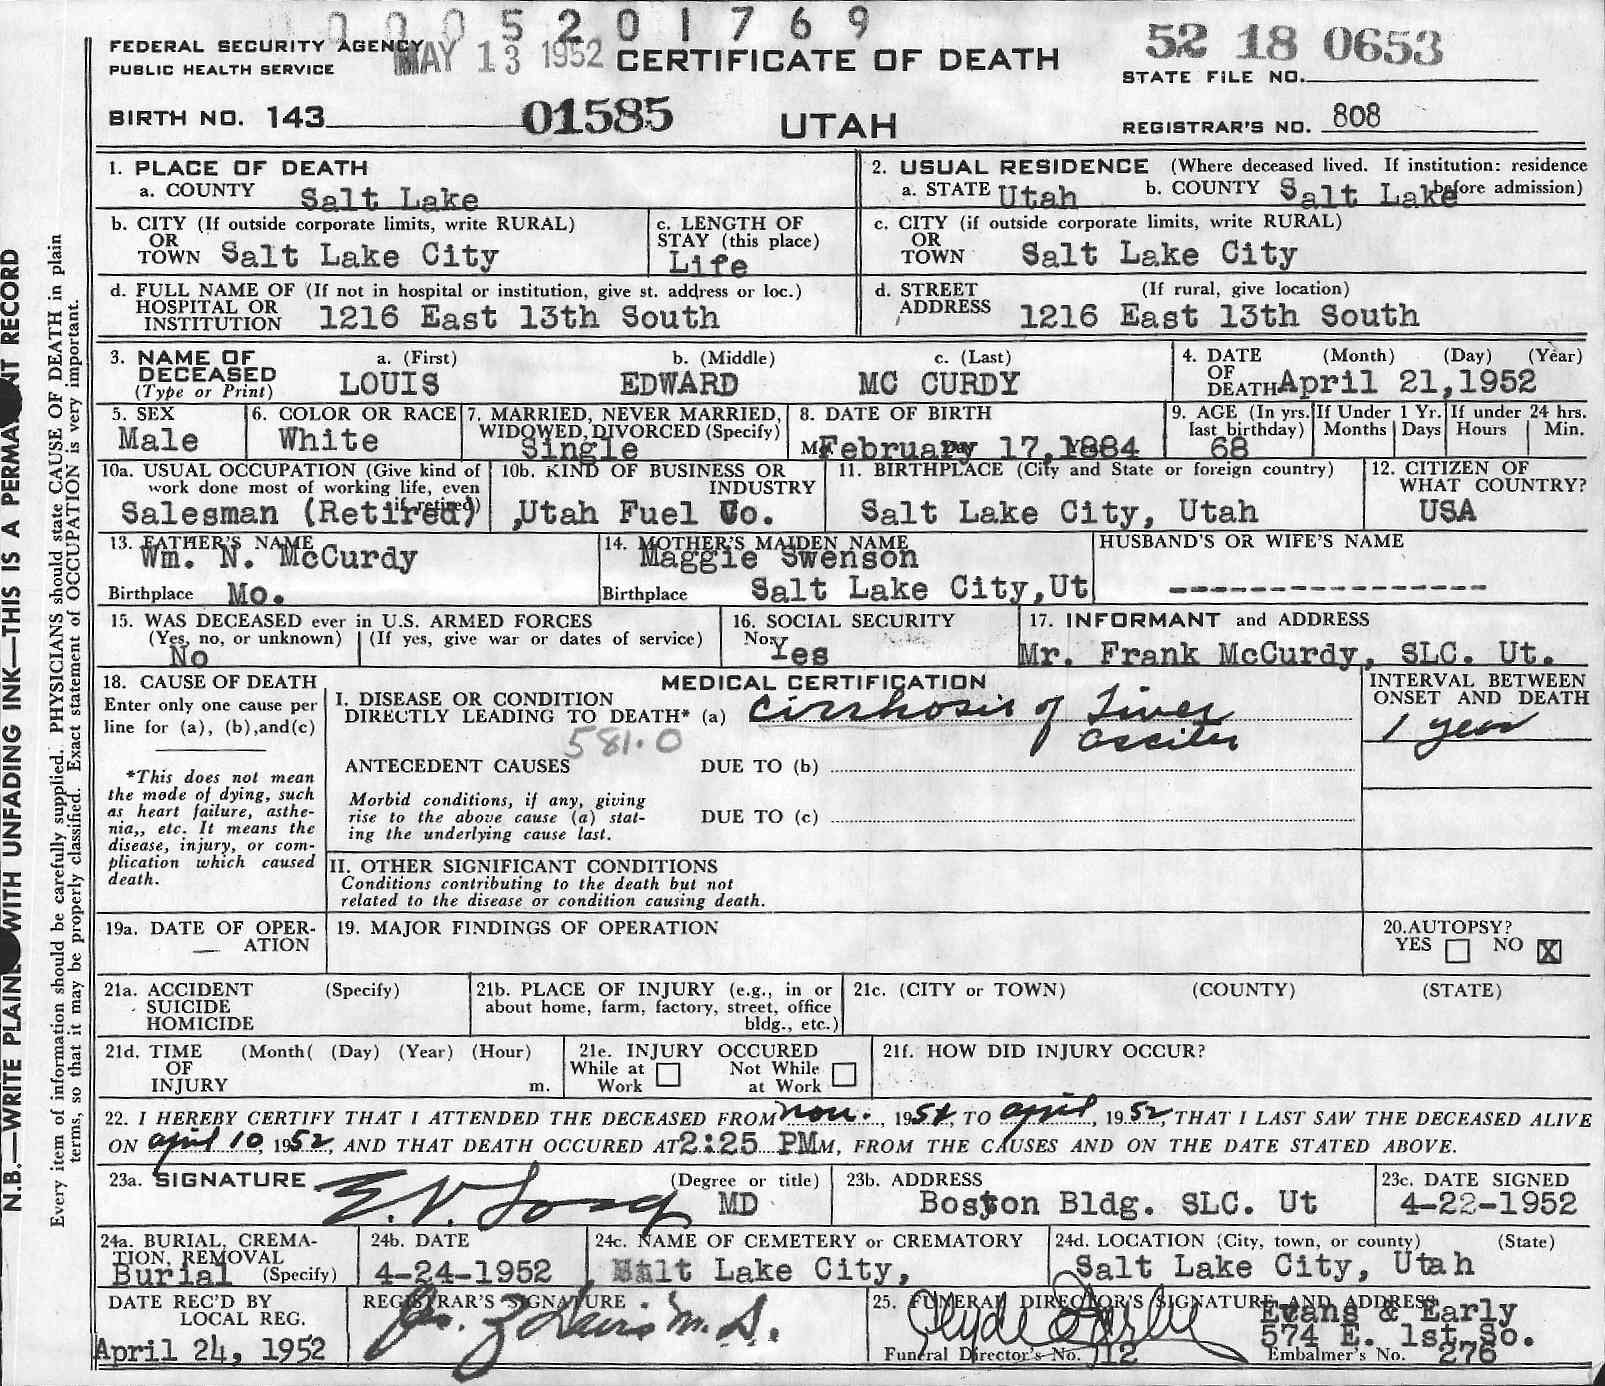 0 0 0 5 2 0 1 7 6 9
FEDERAL SECURITY AGENCY
PUBLIC HEALTH SERVICE
MAY 13 1952
CERTIFICATE OF DEATH
52 18 0653
STATE FILE NO.
BIRTH NO. 143
01585
UTAH
REGISTRAR'S NO. 808
1. PLACE OF DEATH
a. COUNTY Salt Lake
2. USUAL RESIDENCE (Where deceased lived. If institution: residence before admission)
a. STATE Utah b. COUNTY Salt Lake
b. CITY (If outside corporate limits, write RURAL)
OR
TOWN Salt Lake City
c. LENGTH OF
STAY (this place)
Life
c. CITY (if outside corporate limits, write RURAL)
OR
TOWN Salt Lake City
d. FULL NAME OF (If not in hospital or institution, give st. address or loc.)
HOSPITAL OR
INSTITUTION 1216 East 13th South
d. STREET (If rural, give location)
ADDRESS 1216 East 13th South
3. NAME OF DECEASED
(Type or Print)
a. (First) b. (Middle) c. (Last)
LOUIS EDWARD MC CURDY
4. DATE OF DEATH (Month) (Day) (Year)
April 21,1952
5. SEX
Male
6. COLOR OR RACE
White
7. MARRIED, NEVER MARRIED,
WIDOWED, DIVORCED (Specify)
Single
8. DATE OF BIRTH
February 17,1884
9. AGE (In yrs. last birthday)
68
If Under 1 Yr.
Months Days
If under 24 hrs.
Hours Min.
10a. USUAL OCCUPATION (Give kind of
work done most of working life, even
if retired)
Salesman (Retired)
10b. KIND OF BUSINESS OR
INDUSTRY
,Utah Fuel Co.
11. BIRTHPLACE (City and State or foreign country)
Salt Lake City, Utah
12. CITIZEN OF
WHAT COUNTRY?
USA
13. FATHER'S NAME
Wm. N. McCurdy
Birthplace Mo.
14. MOTHER'S MAIDEN NAME
Maggie Swenson
Birthplace Salt Lake City,Ut
HUSBAND'S OR WIFE'S NAME
-----------------
15. WAS DECEASED ever in U.S. ARMED FORCES
(Yes, no, or unknown) (If yes, give war or dates of service)
No
16. SOCIAL SECURITY
No. Yes
17. INFORMANT and ADDRESS
Mr. Frank McCurdy, SLC. Ut.
18. CAUSE OF DEATH
Enter only one cause per
line for (a), (b),and(c)
*This does not mean
the mode of dying, such
as heart failure, asthe-
nia,, etc. It means the
disease, injury, or com-
plication which caused
death.
MEDICAL CERTIFICATION
I. DISEASE OR CONDITION
DIRECTLY LEADING TO DEATH* (a) Cirrhosis of Liver
ascites
581.0
ANTECEDENT CAUSES DUE TO (b)
Morbid conditions, if any, giving
rise to the above cause (a) stat-
ing the underlying cause last.
DUE TO (c)
II. OTHER SIGNIFICANT CONDITIONS
Conditions contributing to the death but not
related to the disease or condition causing death.
INTERVAL BETWEEN
ONSET AND DEATH
1 year
19a. DATE OF OPER-
ATION
19. MAJOR FINDINGS OF OPERATION
20.AUTOPSY?
YES NO X
21a. ACCIDENT (Specify)
SUICIDE
HOMICIDE
21b. PLACE OF INJURY (e.g., in or
about home, farm, factory, street, office
bldg., etc.)
21c. (CITY or TOWN) (COUNTY) (STATE)
21d. TIME (Month( (Day) (Year) (Hour)
OF
INJURY m.
21e. INJURY OCCURED
While at Not While
Work at Work
21f. HOW DID INJURY OCCUR?
22. I HEREBY CERTIFY THAT I ATTENDED THE DECEASED FROM Nov. , 1951, TO April, 1952, THAT I LAST SAW THE DECEASED ALIVE
ON April 10 1952, AND THAT DEATH OCCURED AT 2:25 PM M, FROM THE CAUSES AND ON THE DATE STATED ABOVE.
23a. SIGNATURE (Degree or title)
E. V. Long MD
23b. ADDRESS
Boston Bldg. SLC. Ut
23c. DATE SIGNED
4-22-1952
24a. BURIAL, CREMA-
TION, REMOVAL
Burial (Specify)
24b. DATE
4-24-1952
24c. NAME OF CEMETERY or CREMATORY
Salt Lake City,
24d. LOCATION (City, town, or county) (State)
Salt Lake City, Utah
DATE REC'D BY
LOCAL REG.
April 24, 1952
REGISTRAR'S SIGNATURE
25. FUNERAL DIRECTOR'S SIGNATURE AND ADDRESS
Clyde Early
Evans & Early
574 E. 1st So.
Funeral Director's No. 712
Embalmer's No. 276
N.B.—WRITE PLAINLY WITH UNFADING INK—THIS IS A PERMANENT RECORD
Every item of information should be carefully supplied. PHYSICIANS should state CAUSE OF DEATH in plain
terms, so that it may be properly classified. Exact statement of OCCUPATION is very important.